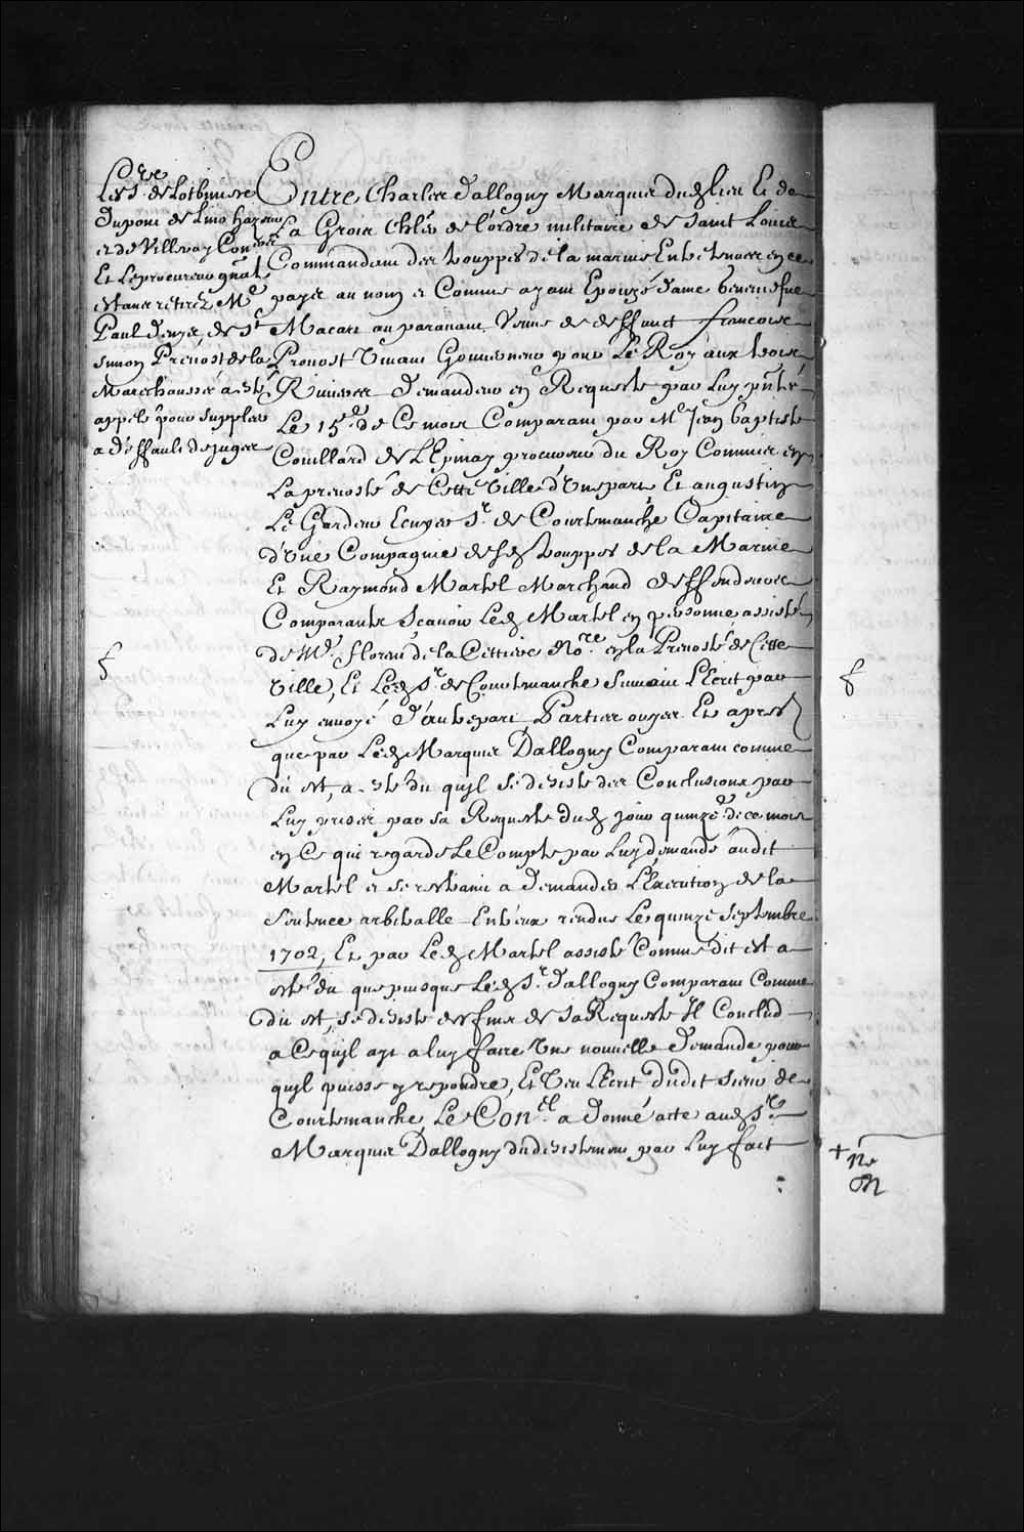 Les Srs. de Lotbiniere
Dupont de Lino hazeur
et de Villeray Coners
Et Le procureur gnal
estans retirez Me
Paul Denys de St
Simon Prevost de la
Marechaussée a esté
appelé pour suppleer
a deffault de juges
Entre Charles Dallogny Marquis dud. lieu Et de
La Groix Chler de l'ordre militaire de Saint Louis
Commandant des troupes de la marine Entretenues en ce
payis au nom et Comme ayant Epouzé dame Genneviefve
Macart auparavant Veuve de deffunct francois
Provost Vivant Gouverneur pour Le Roy aux trois
Rivieres Demandeur en Requeste par Luy pnté
Le 15e. de Ce mois Comparant par Me Jean baptiste
Couillard de L'Epinay procureur du Roy Commis en
La prevosté de Cette Ville d'Une part Et augustin
Le Gardeur Ecuyer Sr. de Courtemanche Capitaine
d'Une Compagnie desd. trouppes de la Marine
Et Raymond Martel Marchand deffendeurs
Comparants Scavoir Led. Martel en personne assisté
de Me. florent de la Cettiere Nore. en la Prevosté de Cette
Ville, Et Led. Sr. de Courtemanche Suivant L'Ecrit par
Luy envoyé d'autre part, Parties ouyes Et apres
que par Led. Marquis Dallogny Comparant comme
dit est, a esté dit qu'jl se desiste des Conclusions par
Luy prises par sa Requeste dud. jour quinze. de ce mois
en Ce qui regarde Le Compte par Luy demandé audit
Martel et se restraint a demander L'Execution de la
Sentence arbitralle Entr'eux rendue Le quinze Septembre
1702, Et par Led. Martel assisté Comme dit est a
esté dit que puisque Led. Sr. Dallogny Comparant Comme
dit est, se desiste des fins de sa Requeste Jl Conclud
a Ce qu'jl ayt a luy faire Une nouvelle Demande pour
qu'jl puisse y repondre, Et Veu L'Ecrit dudit Sieur de
Courtemanche, Le Conel. a donné acte aud. Sr.
Marquis Dallogny du desistement par Luy fait